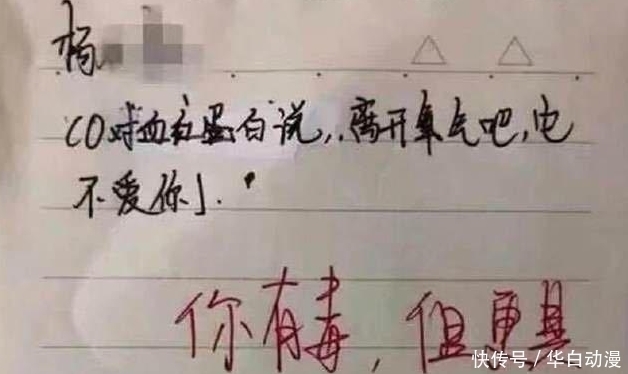 杨
CO对血红蛋白说，离开氧气吧，它
不爱你」.
你有毒，但更甚
快传号／华白动漫